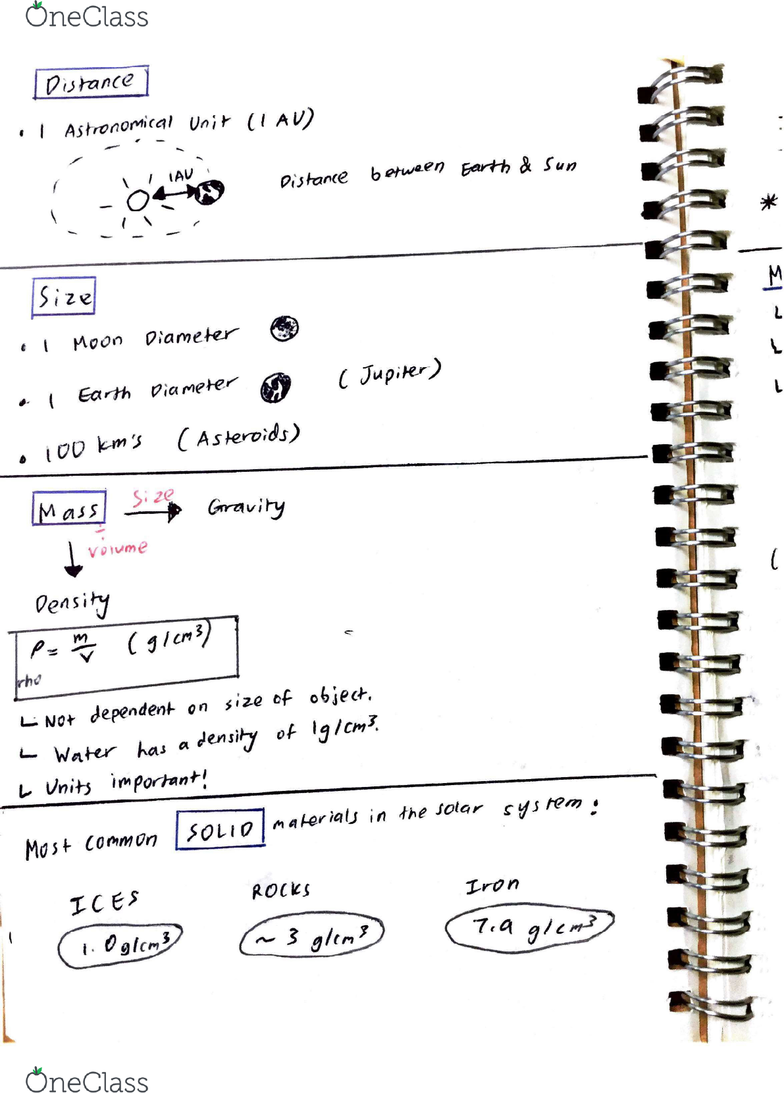 OneClass
Distance
• 1 Astronomical Unit (1 AU)
1AU
Distance between Earth & Sun
Size
• 1 Moon Diameter
• 1 Earth Diameter (Jupiter)
• 100 km's (Asteroids)
Mass Size Gravity
÷ volume
Density
ρ = m/v (g/cm³)
rho
Not dependent on size of object.
Water has a density of 1g/cm³.
Units important!
Most common SOLID materials in the solar system:
ICES ROCKS Iron
1.0g/cm³ ~ 3 g/cm³ 7.9 g/cm³
*
M
(
OneClass